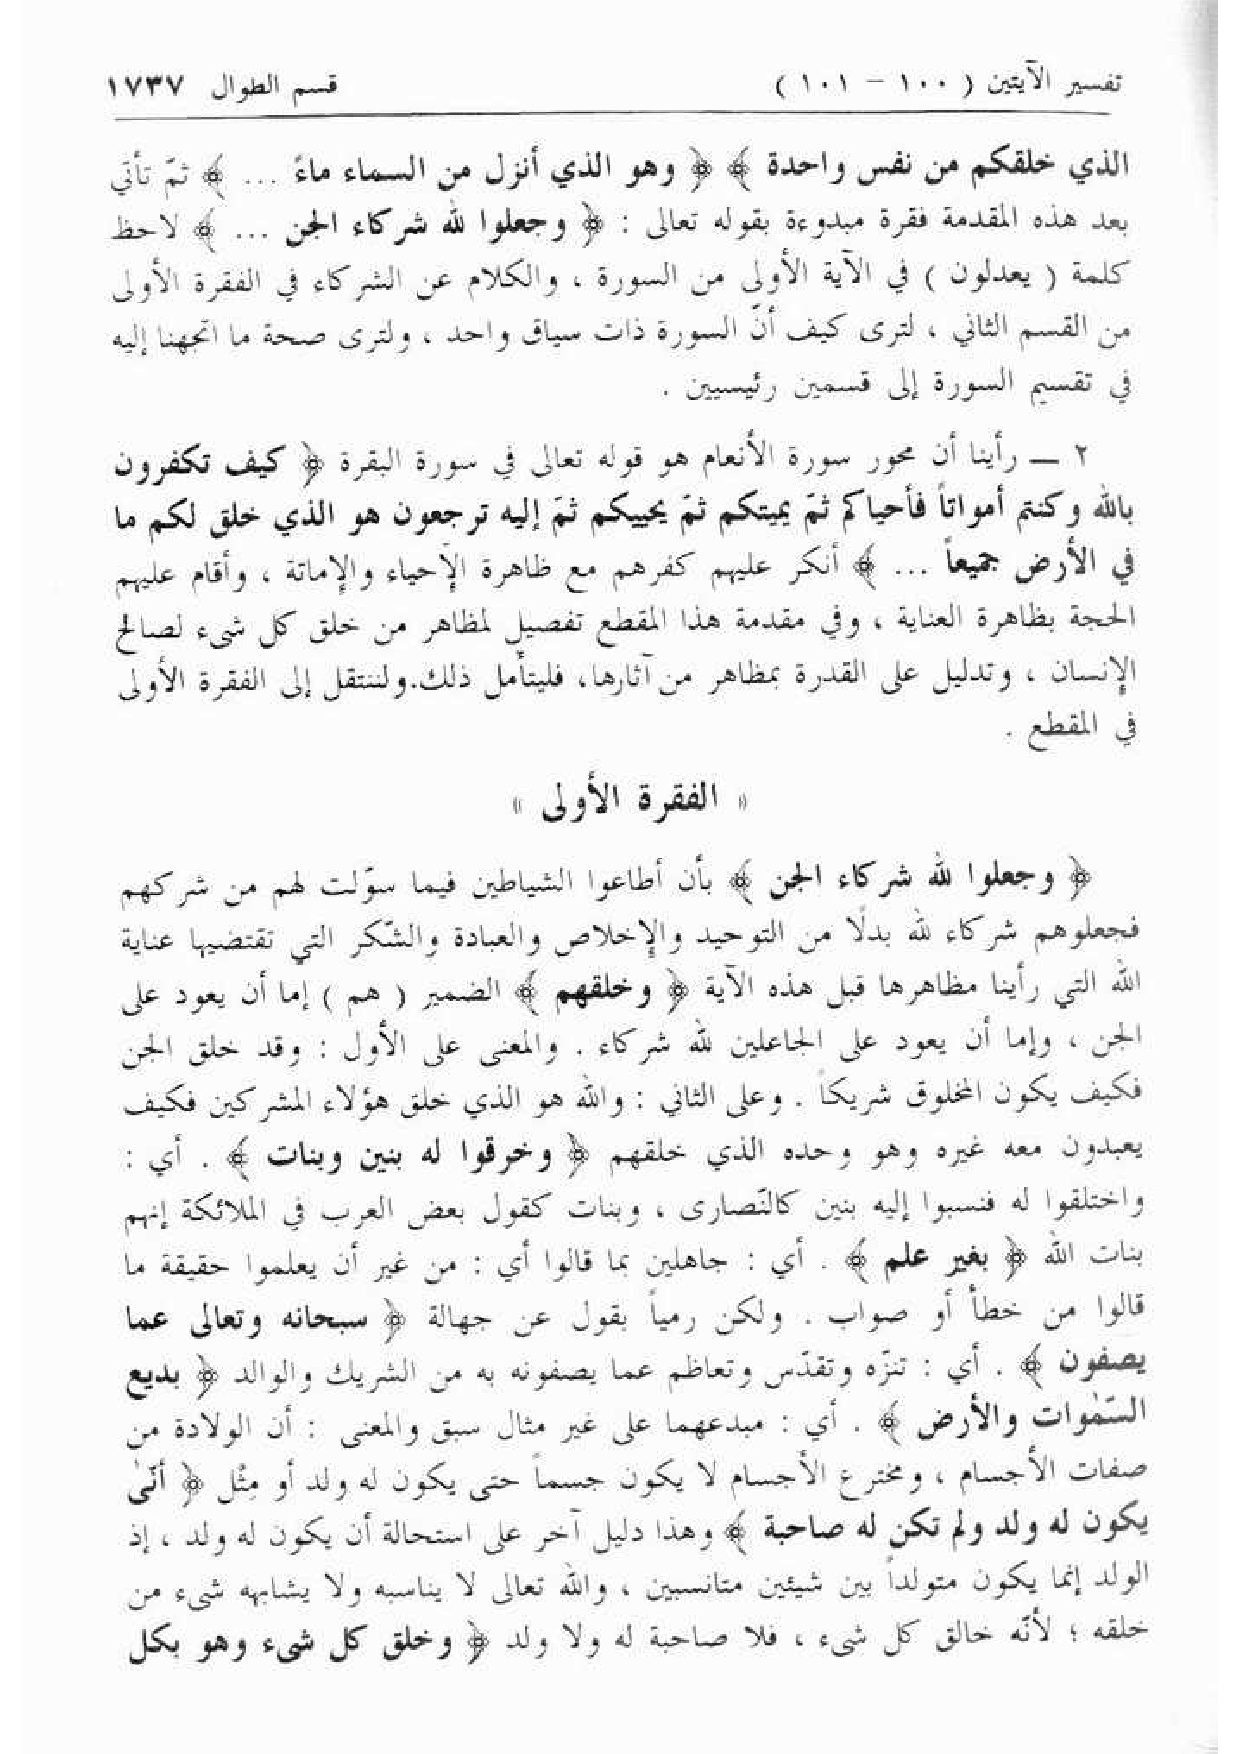 تفسير الآيتين ( ١٠٠ - ١٠١ ) قسم الطوال ١٧٣٧
الذي خلقكم من نفس واحدة ﴾ ﴿ وهو الذي أنزل من السماء ماءً ... ﴾ ثمّ تأتي
بعد هذه المقدمة فقرة مبدوءة بقوله تعالى : ﴿ وجعلوا لله شركاء الجن ... ﴾ لاحظ
كلمة ( يعدلون ) في الآية الأولى من السورة ، والكلام عن الشركاء في الفقرة الأولى
من القسم الثاني ، لترى كيف أنّ السورة ذات سياق واحد ، ولترى صحة ما اتجهنا إليه
في تقسيم السورة إلى قسمين رئيسيين .
٢ ـــ رأينا أن محور سورة الأنعام هو قوله تعالى في سورة البقرة ﴿ كيف تكفرون
بالله وكنتم أمواتاً فأحياكم ثمّ يميتكم ثمّ يحييكم ثمّ إليه ترجعون هو الذي خلق لكم ما
في الأرض جميعاً ... ﴾ أنكر عليهم كفرهم مع ظاهرة الإحياء والإماتة ، وأقام عليهم
الحجة بظاهرة العناية ، وفي مقدمة هذا المقطع تفصيل لمظاهر من خلق كل شىء لصالح
الإنسان ، وتدليل على القدرة بمظاهر من آثارها، فليتأمل ذلك.ولننتقل إلى الفقرة الأولى
في المقطع .
« الفقرة الأولى »
﴿ وجعلوا لله شركاء الجن ﴾ بأن أطاعوا الشياطين فيما سوّلت لهم من شركهم
فجعلوهم شركاء لله بدلًا من التوحيد والإخلاص والعبادة والشّكر التي تقتضيها عناية
الله التي رأينا مظاهرها قبل هذه الآية ﴿ وخلقهم ﴾ الضمير ( هم ) إما أن يعود على
الجن ، وإما أن يعود على الجاعلين لله شركاء . والمعنى على الأول : وقد خلق الجن
فكيف يكون المخلوق شريكاً . وعلى الثاني : والله هو الذي خلق هؤلاء المشركين فكيف
يعبدون معه غيره وهو وحده الذي خلقهم ﴿ وخرقوا له بنين وبنات ﴾ . أي :
واختلقوا له فنسبوا إليه بنين كالنّصارى ، وبنات كقول بعض العرب في الملائكة إنهم
بنات الله ﴿ بغير علم ﴾ . أي : جاهلين بما قالوا أي : من غير أن يعلموا حقيقة ما
قالوا من خطأ أو صواب . ولكن رمياً بقول عن جهالة ﴿ سبحانه وتعالى عما
يصفون ﴾ . أي : تنزّه وتقدّس وتعاظم عما يصفونه به من الشريك والوالد ﴿ بديع
السّمٰوات والأرض ﴾ . أي : مبدعهما على غير مثال سبق والمعنى : أن الولادة من
صفات الأجسام ، ومخترع الأجسام لا يكون جسماً حتى يكون له ولد أو مِثْل ﴿ أنّىٰ
يكون له ولد ولم تكن له صاحبة ﴾ وهذا دليل آخر على استحالة أن يكون له ولد ، إذ
الولد إنما يكون متولداً بين شيئين متانسبين ، والله تعالى لا يناسبه ولا يشابهه شىء من
خلقه ؛ لأنّه خالق كل شىء ، فلا صاحبة له ولا ولد ﴿ وخلق كل شىء وهو بكل